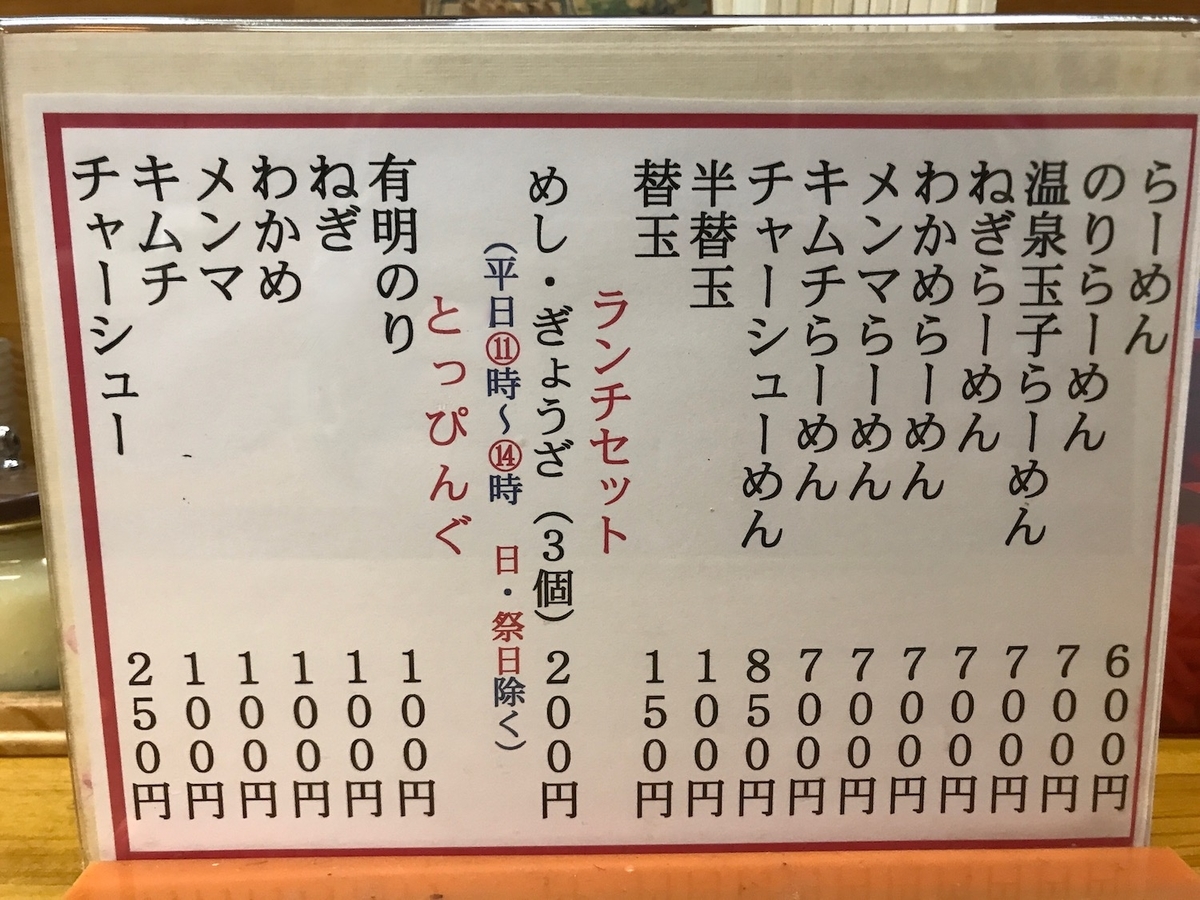 らーめん 600円
のりらーめん 700円
温泉玉子らーめん 700円
ねぎらーめん 700円
わかめらーめん 700円
メンマらーめん 700円
キムチらーめん 700円
チャーシューめん 850円
半替玉 100円
替玉 150円
ランチセット
めし・ぎょうざ（3個） 200円
（平日⑪時～⑭時 日・祭日除く）
とっぴんぐ
有明のり 100円
ねぎ 100円
わかめ 100円
メンマ 100円
キムチ 100円
チャーシュー 250円